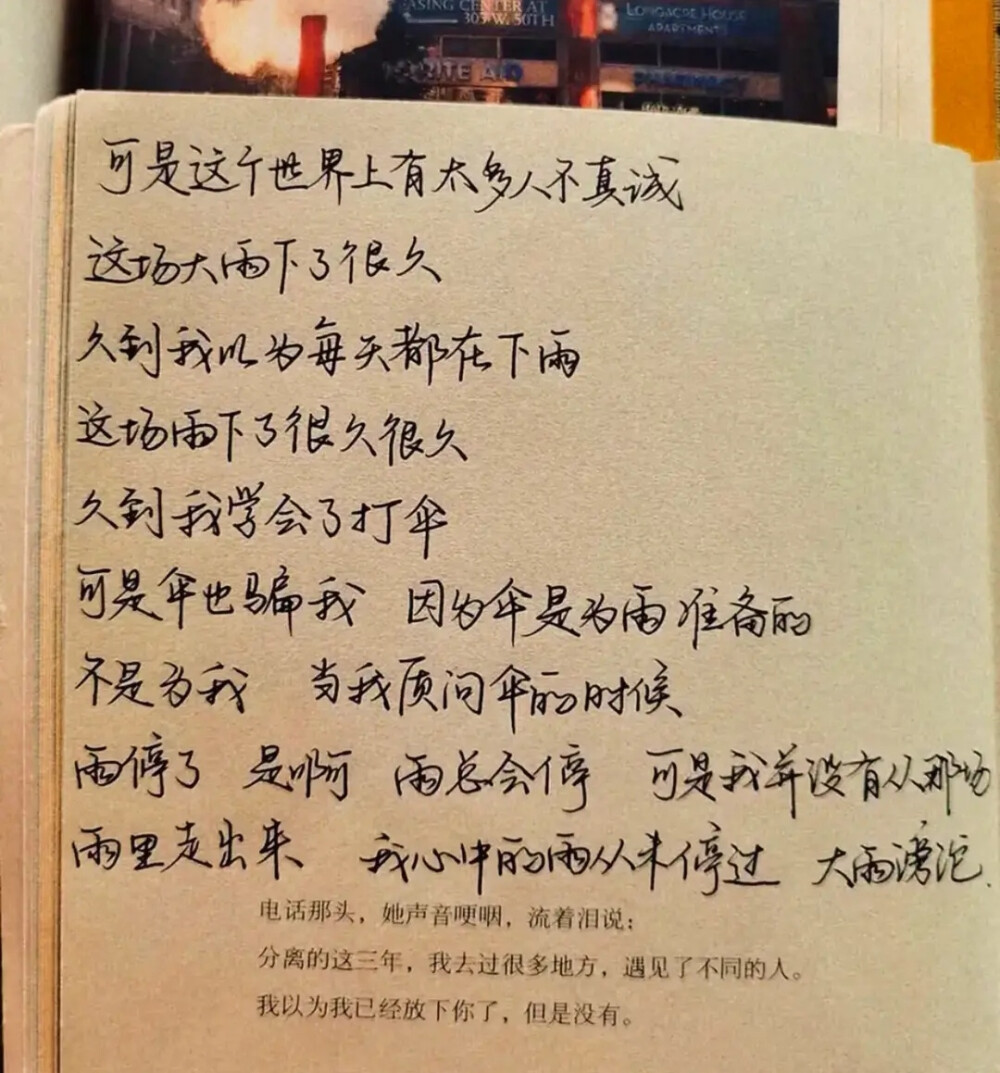 ASING CENTER AT
303 W. 50TH
LONGACRE HOUSE
APARTMENTS
RITE AID
PHARMACY
可是这个世界上有太多人不真诚
这场大雨下了很久
久到我以为每天都在下雨
这场雨下了很久很久
久到我学会了打伞
可是伞也骗我 因为伞是为雨准备的
不是为我 当我质问伞的时候
雨停了 是啊 雨总会停 可是我并没有从那场
雨里走出来 我心中的雨从未停过 大雨滂沱.
电话那头，她声音哽咽，流着泪说：
分离的这三年，我去过很多地方，遇见了不同的人。
我以为我已经放下你了，但是没有。